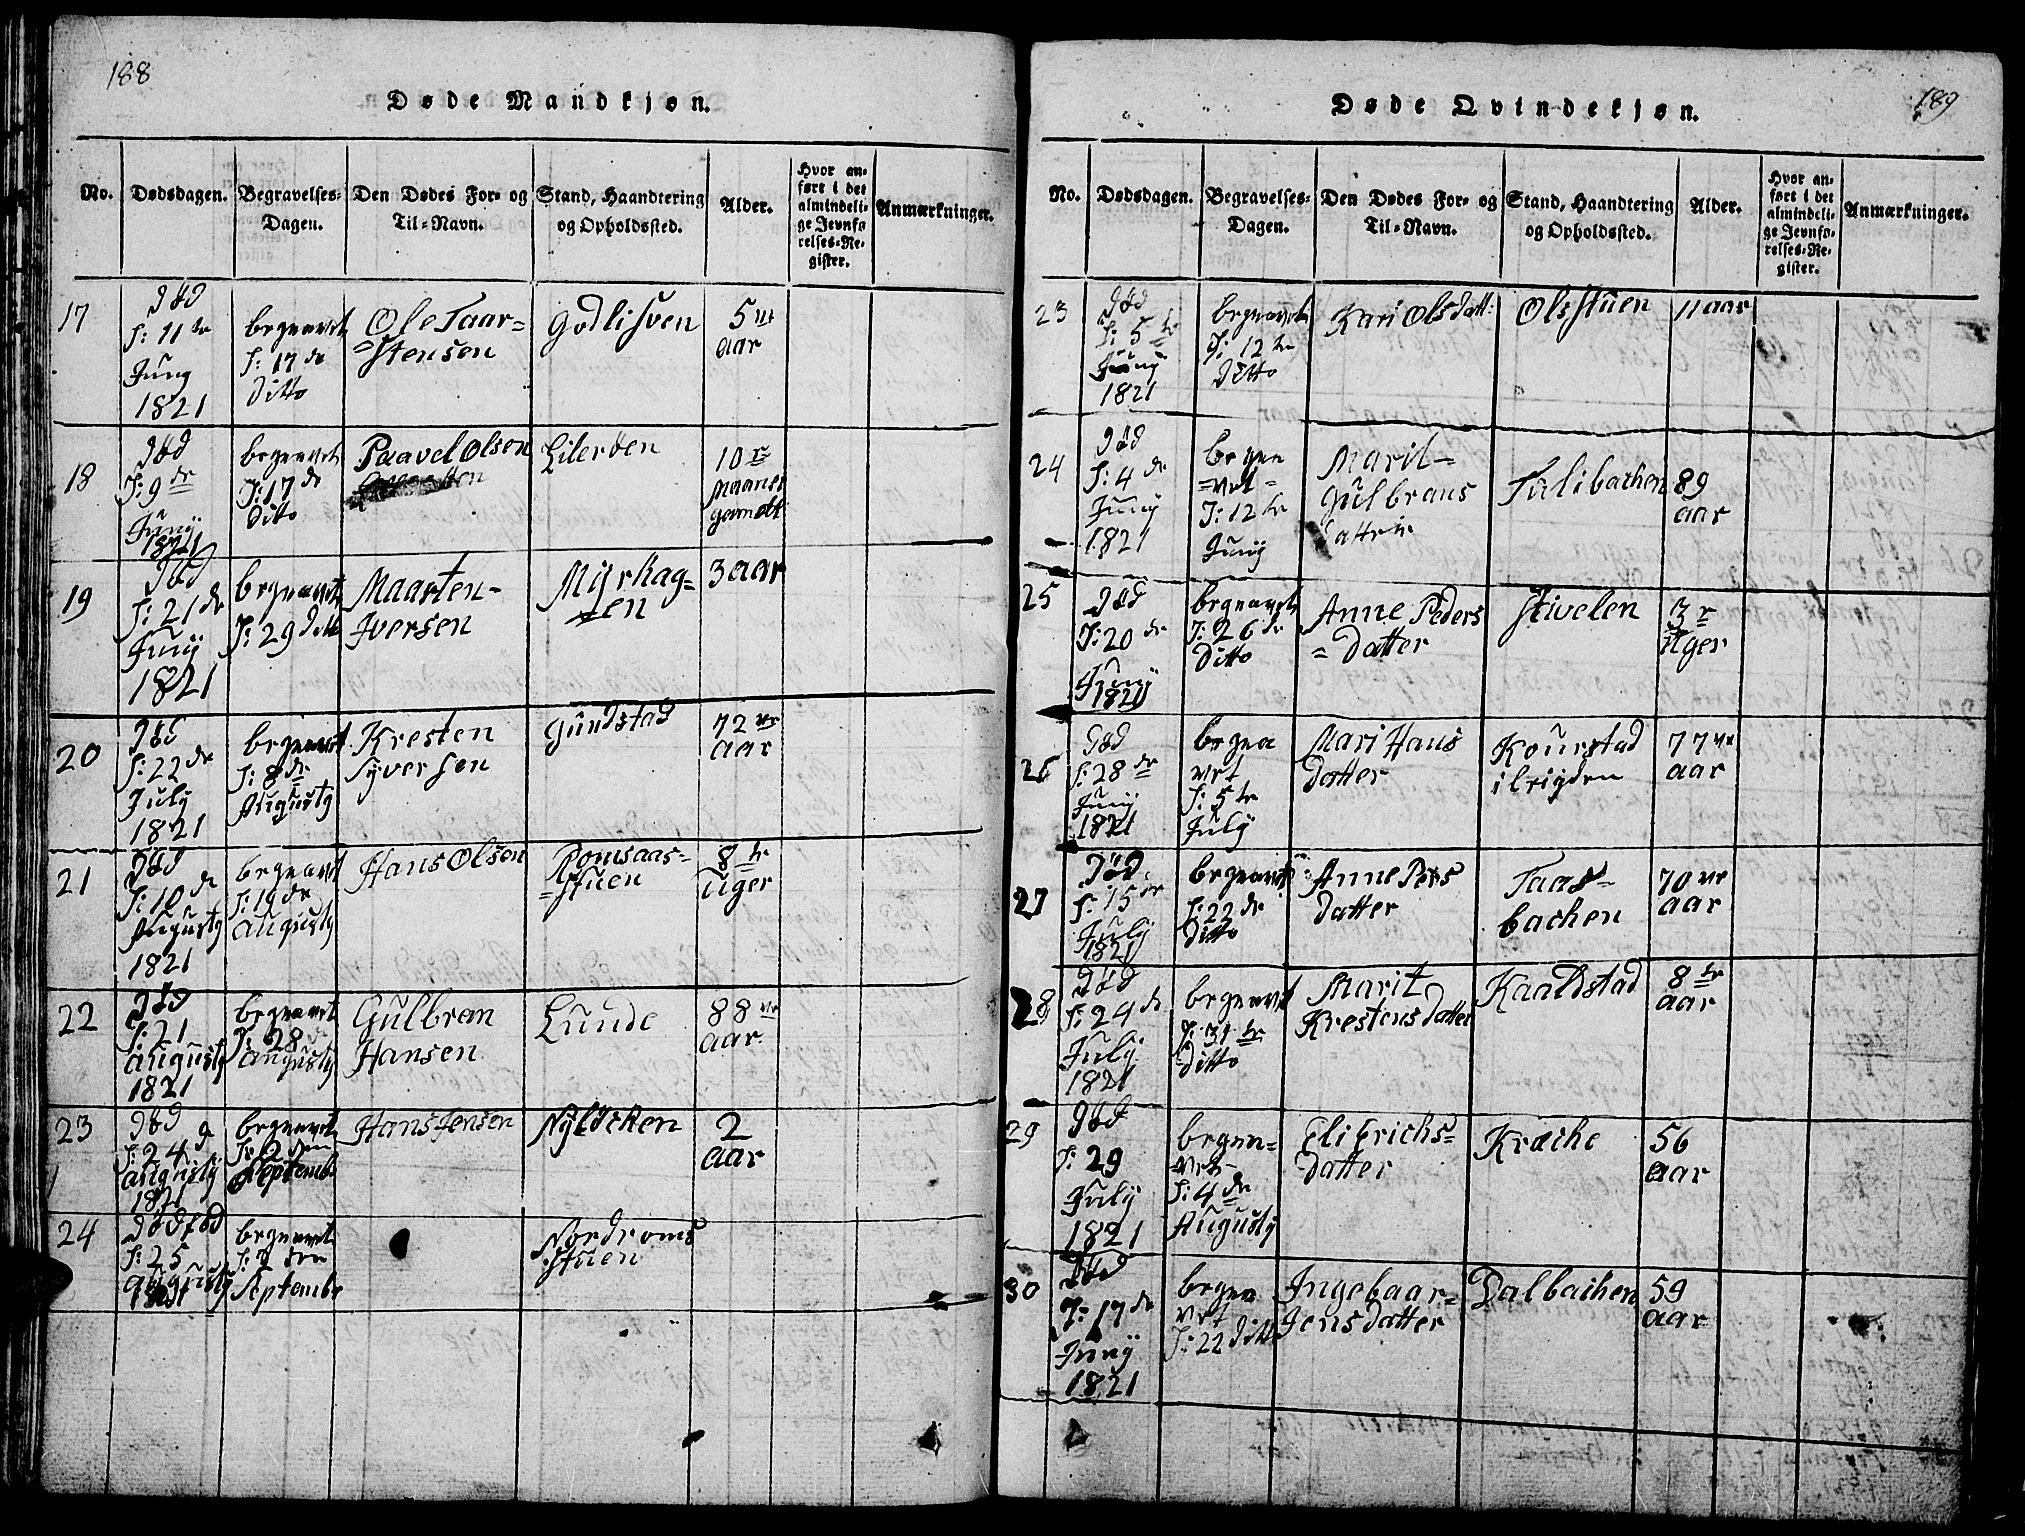 188
Døde Mandkjøn.
No.
Dødsdagen.
Begravelses-
Dagen.
Den Dødes For- og
Til-Navn.
Stand, Haandtering
og Opholdssted.
Alder.
Hvor an-
ført i det
almindeli-
ge Jevnfø
relses-Re-
gister.
Anmærkninger.
17
Død
d: 11te
Juny
1821
begravet
d: 17de
Ditto
Ole Taar-
=stensen
Godlisven
5
aar
18
Død
d: 9de
Juny
1821
begravet
d: 17de
Ditto
Paavel Olsen
Lilerøen
10
Maaneder
gamelt
19
Død
d: 21de
Juny
1821
begravet
d: 29 ditto
Maarten-
Iversen
Myrhag-
en
3 aar
20
Død
d: 22de
July
1821
begravet
d: 8de
Augusty
Kresten
Syversen
Gundstad
72
aar
21
Død
d: 10de
Augusty
1821
begravet
d: 19de
Augusty
Hans Olsen
Romsaas-
=stuen
8te
Uger
22
Død
d: 21
Augusty
1821
begravet
d: 28
Augusty
Gulbran
Hansen
Lunde
88
aar
23
Død
d: 24d
Augusty
1821
begravet
d: 2den
Septembr
Hans Jensen
Nyløcken
2
aar
24
Dødfød
d: 25
Augusty
1821
begravet
Septembr
Nordroms
Stuen
189
Døde Qvindekjøn.
No.
Dødsdagen.
Begravelses-
Dagen.
Den Dødes For- og
Til-Navn.
Stand, Haandtering
og Opholdssted.
Alder.
Hvor an-
ført i det
almindeli-
ge Jevnfø-
relses-Re-
gister.
Anmærkninger.
23
Død
d: 5te
Juny
1821
begravet
d: 12te
Ditto
Kari Olsdatt:
Olsstuen
11 aar
24
Død
d: 4de
Juny
1821
begra
=vet=
d: 12te
Juny
Marit-
Gulbrans
Datter
Tulibachen
89
aar
25
Død
d: 20de
Juny
1821
begravet
d: 26de
Ditto
Anne Peders
=Datter
Stivelen
3
Uger
26
Død
d: 28de
Juny
1821
begra
vet
d: 5te
July
Mari Hans
Datter
Kourstad
77
aar
27
Død
d: 15de
July
1821
begravet
d: 22de
Ditto
Anne Pers
Datter
Taas-
bachen
70
aar
28
Død
d: 24de
July
1821
begravet
d: 31te
Ditto
Marit
Krestensdatter
Kaaldstad
8te
aar
29
Død
d: 29
July
1821
begra-
vet-
d: 4de
Augusty
Eli Erichs-
Datter
Kræche
56
aar
30
Død
d: 17de
Juny
1821
begra
vet
d: 22 Ditto
Ingebaar-
Jensdatter
Dalbachen
59
aar